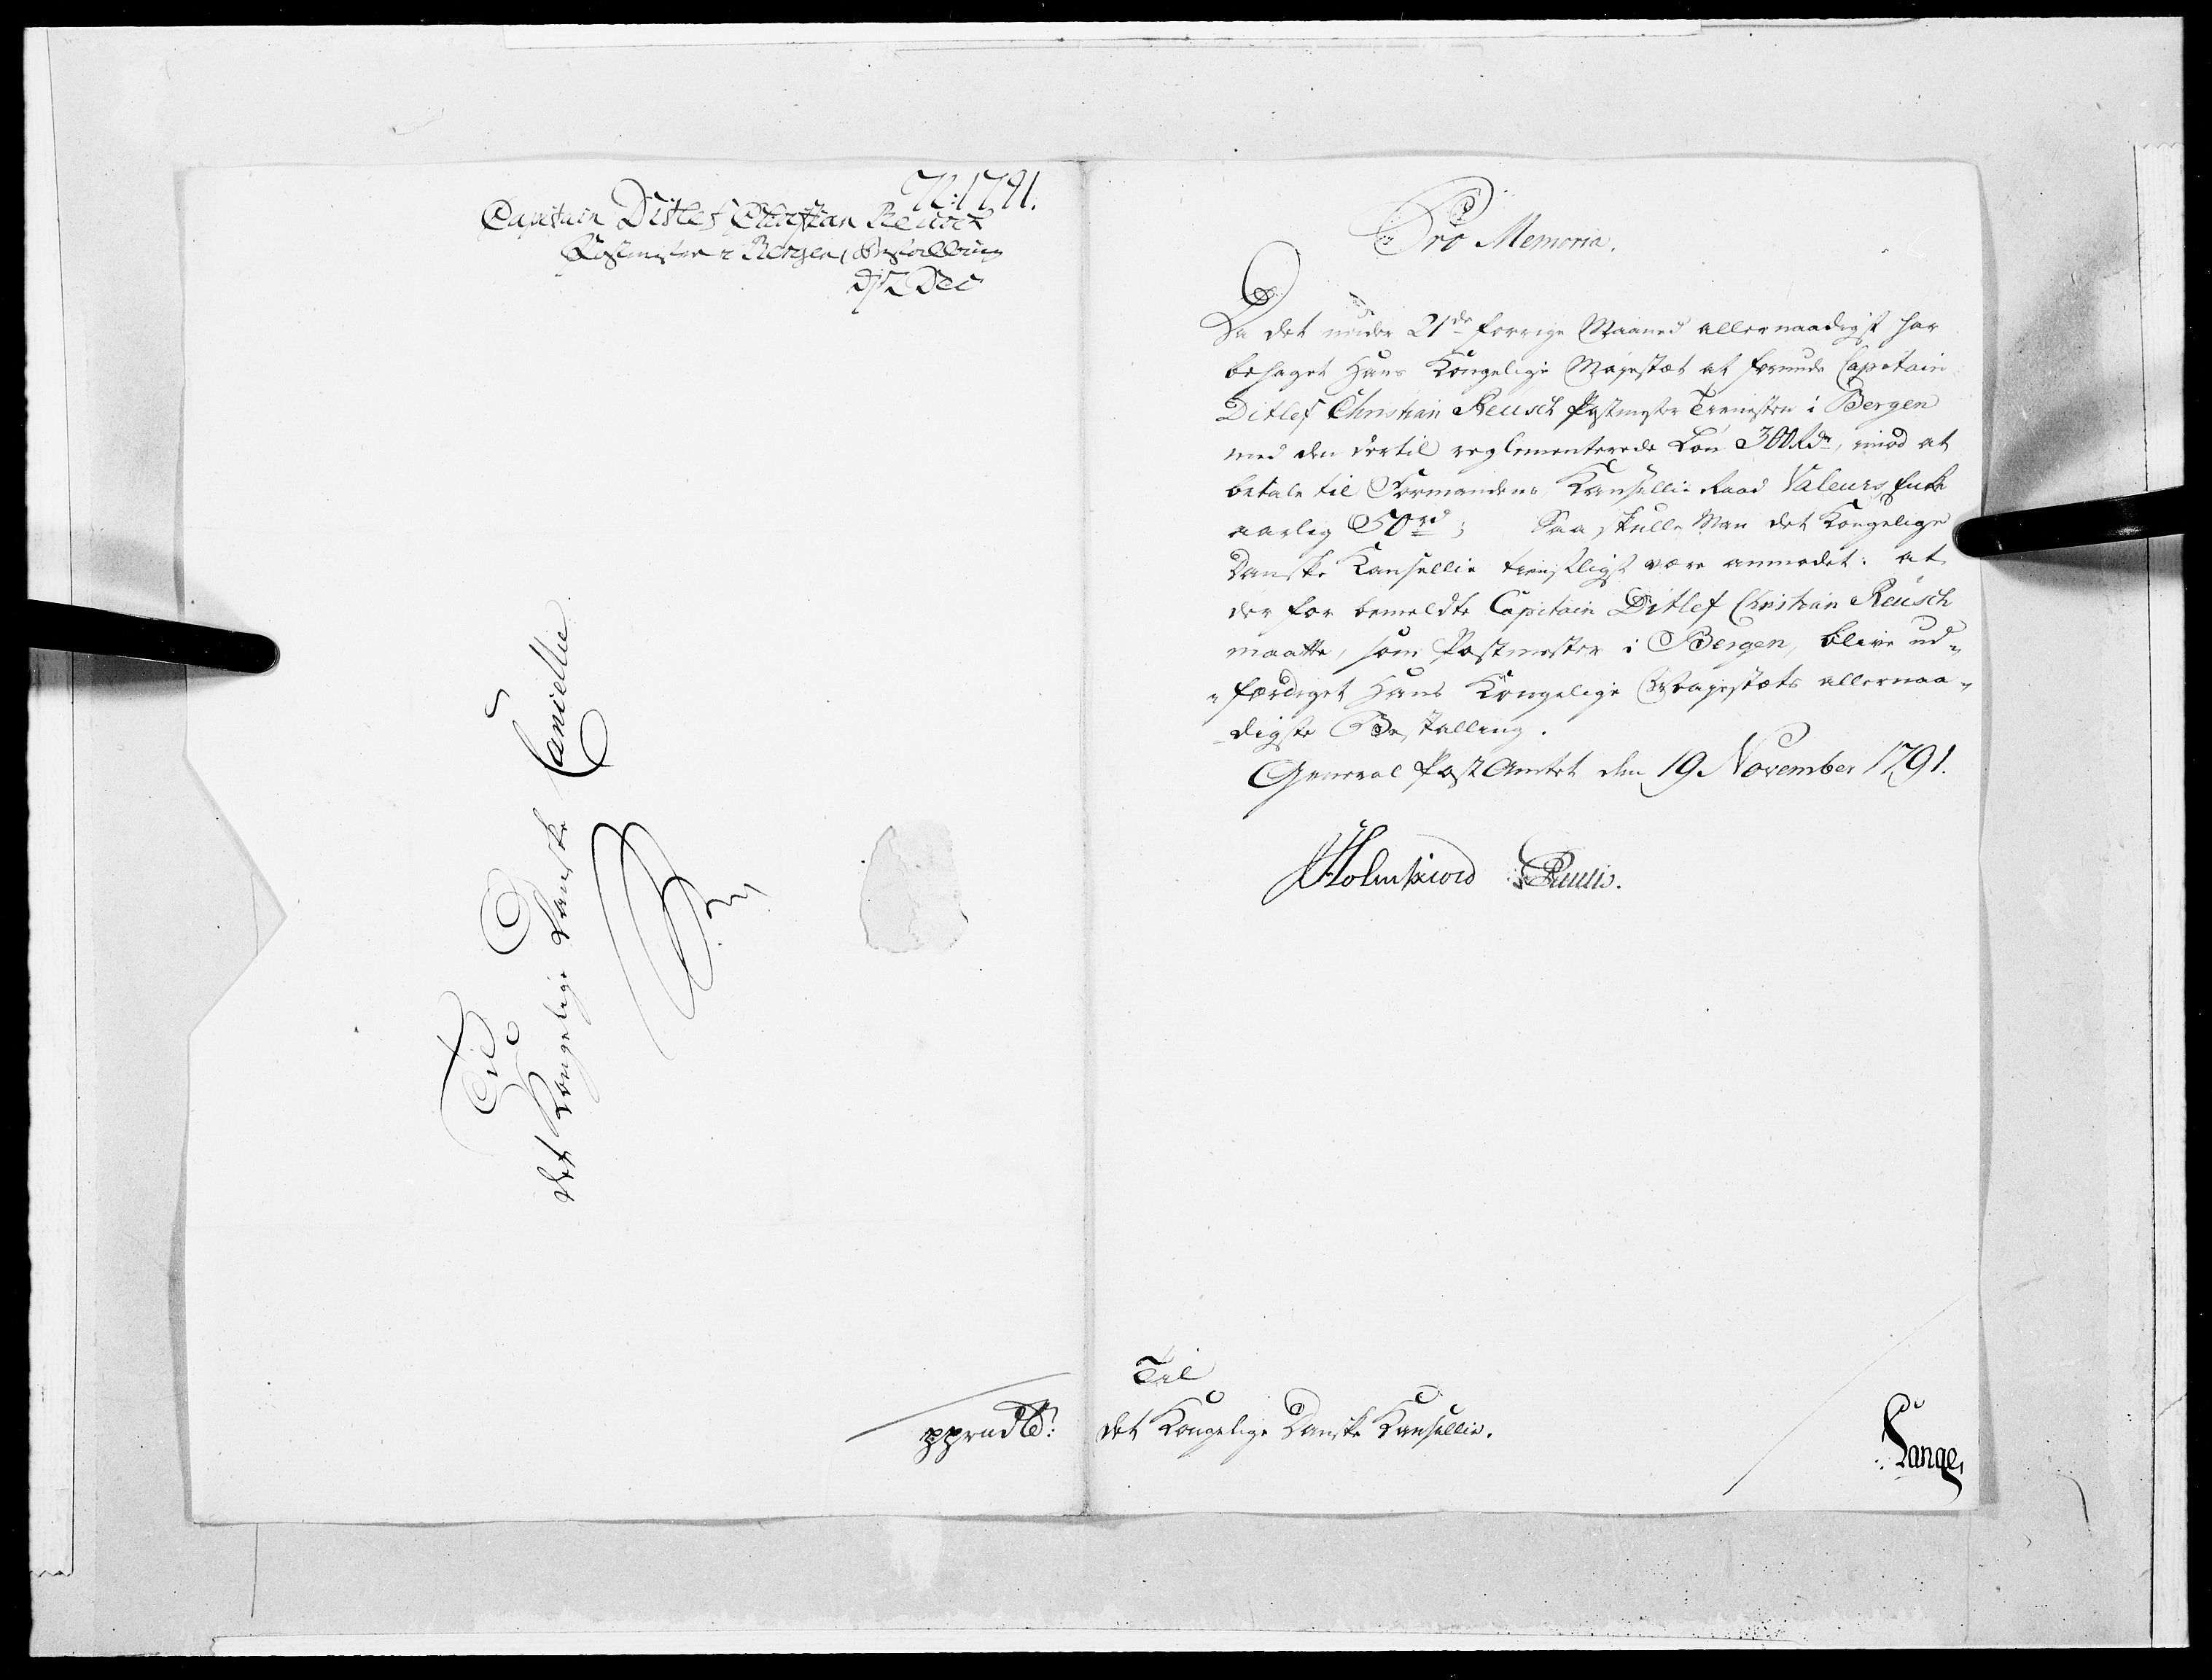 N: 1791.
Capitain Ditlef Christian Reusch
Postmester i Bergen, Bestalling
d 2 Dec
Til
det Kongelige Danske Cancellie
Pro Memoria.
Da det under 21de forrige Maaned allernaadigst har
behaget Hans Kongelige Majestæt at forunde Capitain
Ditlef Christian Reusch Postmester Tienesten i Bergen
med den dertil reglementerede Løn 300 Rdr, imod at
betale til Formandens Kancellie Raad Valeurs Enke
aarlig 50 rd; Saa skulle Man det Kongelige
Danske Kancellie tienstligst være anmodet: at
der for bemeldte Capitain Ditlef Christian Reusch
maatte, som Postmester i Bergen, blive ud-
færdiget Hans Kongelige Majestæts allernaa-
digste Bestalling.
General Post Amtet den 19 November 1791.
Holmskiold
Til
det Kongelige Danske Kancellie.
Lange